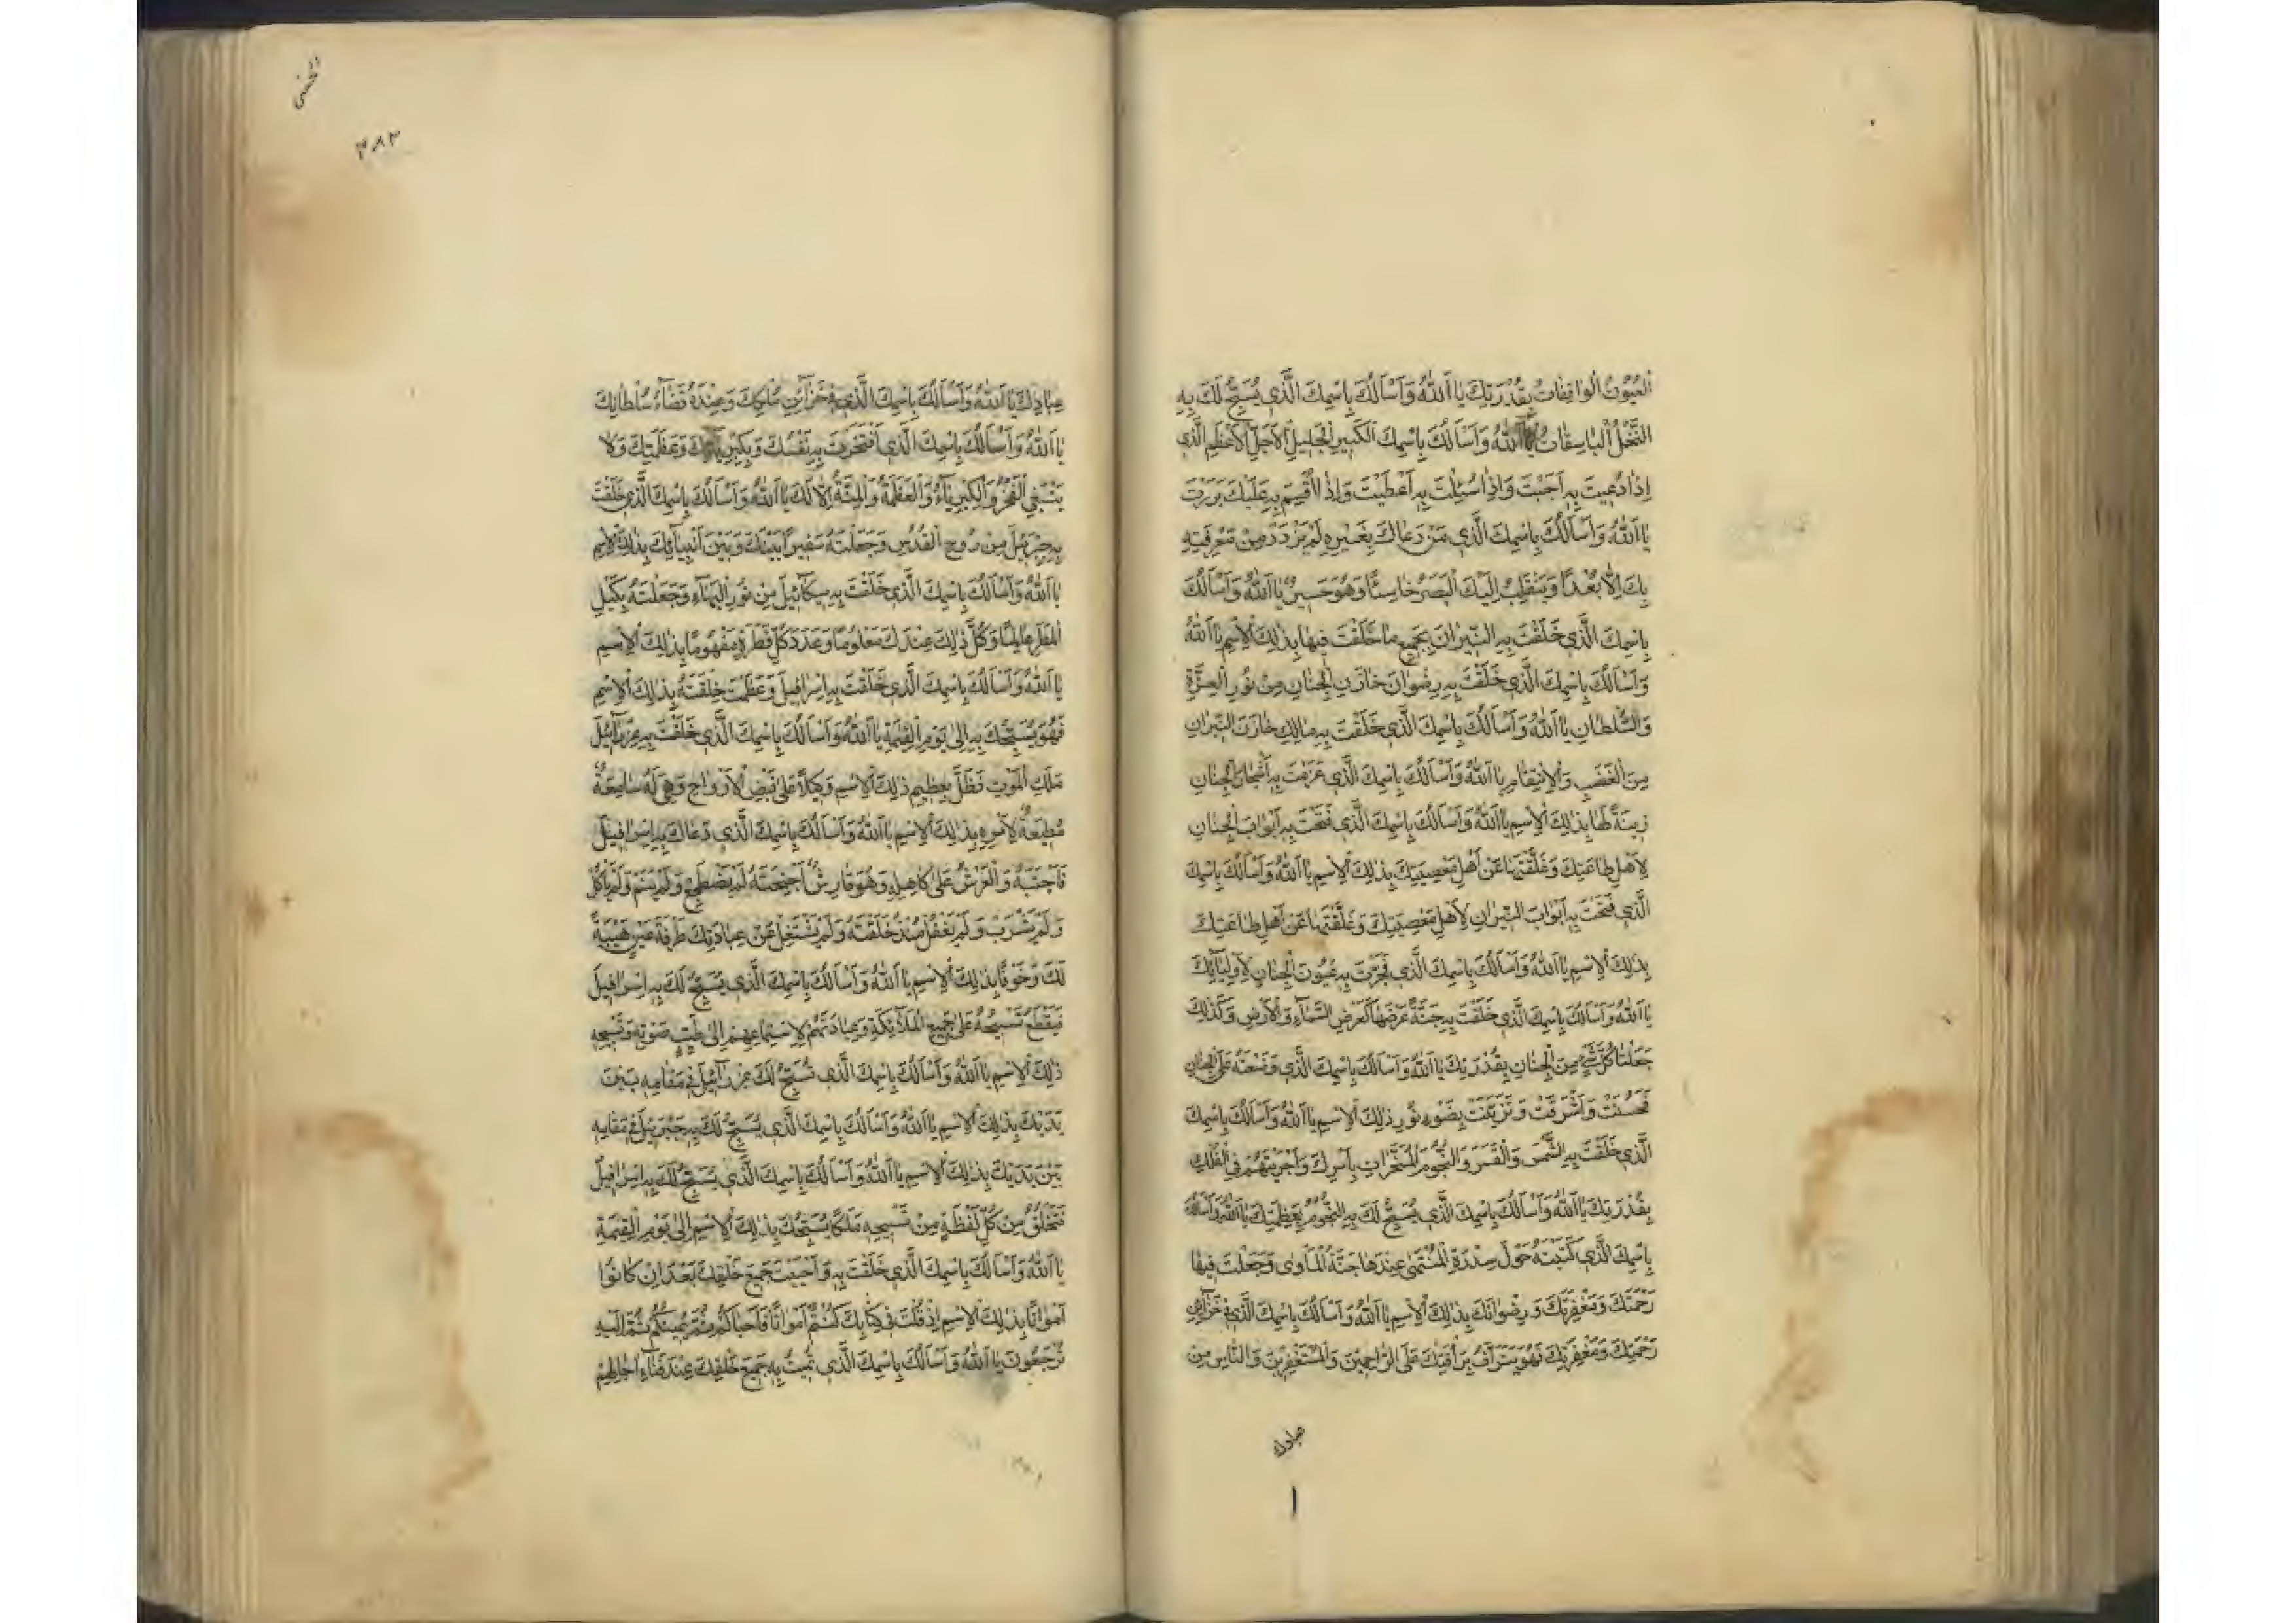 اَلْعُيُونُ الْوَاقِفَاتُ بِقُدْرَتِكَ يَا اَللّٰهُ وَاَسْاَلُكَ بِاسْمِكَ الَّذِي يُسَبِّحُ لَكَ بِهِ
النَّخْلُ الْبَاسِقَاتُ يَا اَللّٰهُ وَاَسْاَلُكَ بِاسْمِكَ الْكَبِيرِ الْجَلِيلِ الْاَجَلِّ الْاَعْظَمِ الَّذِي
اِذَا دُعِيتَ بِهِ اَجَبْتَ وَاِذَا سُئِلْتَ بِهِ اَعْطَيْتَ وَاِذَا اُقْسِمَ بِهِ عَلَيْكَ بَرَرْتَ
يَا اَللّٰهُ وَاَسْاَلُكَ بِاسْمِكَ الَّذِي مَنْ دَعَاكَ بِغَيْرِهِ لَمْ يَزْدَدْ مِنْ مَعْرِفَتِهِ
بِكَ اِلَّا بُعْدًا وَيَنْقَلِبْ اِلَيْكَ الْبَصَرُ خَاسِئًا وَهُوَ حَسِيرٌ يَا اَللّٰهُ وَاَسْاَلُكَ
بِاسْمِكَ الَّذِي خَلَقْتَ بِهِ النِّيرَانَ بِجَمِيعِ مَا خَلَقْتَ فِيهَا بِذٰلِكَ الْاِسْمِ يَا اَللّٰهُ
وَاَسْاَلُكَ بِاسْمِكَ الَّذِي خَلَقْتَ بِهِ رِضْوَانَ خَازِنَ الْجِنَانِ مِنْ نُورِ الْعِزَّةِ
وَالسُّلْطَانِ يَا اَللّٰهُ وَاَسْاَلُكَ بِاسْمِكَ الَّذِي خَلَقْتَ بِهِ مَالِكَ خَازِنَ النِّيرَانِ
مِنَ الْغَضَبِ وَالْاِنْتِقَامِ يَا اَللّٰهُ وَاَسْاَلُكَ بِاسْمِكَ الَّذِي غَرَسْتَ بِهِ اَشْجَارَ الْجِنَانِ
زِينَةً لَهَا بِذٰلِكَ الْاِسْمِ يَا اَللّٰهُ وَاَسْاَلُكَ بِاسْمِكَ الَّذِي فَتَحْتَ بِهِ اَبْوَابَ الْجِنَانِ
لِاَهْلِ طَاعَتِكَ وَغَلَّقْتَهَا عَنْ اَهْلِ مَعْصِيَتِكَ بِذٰلِكَ الْاِسْمِ يَا اَللّٰهُ وَاَسْاَلُكَ بِاسْمِكَ
الَّذِي فَتَحْتَ بِهِ اَبْوَابَ النِّيرَانِ لِاَهْلِ مَعْصِيَتِكَ وَغَلَّقْتَهَا عَنْ اَهْلِ طَاعَتِكَ
بِذٰلِكَ الْاِسْمِ يَا اَللّٰهُ وَاَسْاَلُكَ بِاسْمِكَ الَّذِي فَجَّرْتَ بِهِ عُيُونَ الْجِنَانِ لِاَوْلِيَائِكَ
يَا اَللّٰهُ وَاَسْاَلُكَ بِاسْمِكَ الَّذِي خَلَقْتَ بِهِ جَنَّةً عَرْضُهَا كَعَرْضِ السَّمَاءِ وَالْاَرْضِ وَكَذٰلِكَ
جَعَلْتَ كُلَّ شَيْءٍ مِنَ الْجِنَانِ بِقُدْرَتِكَ يَا اَللّٰهُ وَاَسْاَلُكَ بِاسْمِكَ الَّذِي وَضَعْتَهُ عَلَى الْجِنَانِ
فَحَسُنَتْ وَاَشْرَقَتْ وَتَزَيَّنَتْ بِضَوْءِ نُورِ ذٰلِكَ الْاِسْمِ يَا اَللّٰهُ وَاَسْاَلُكَ بِاسْمِكَ
الَّذِي خَلَقْتَ بِهِ الشَّمْسَ وَالْقَمَرَ وَالنُّجُومَ الْمُسَخَّرَاتِ بِاَمْرِكَ وَاَجْرَيْتَهُمْ فِي الْفَلَكِ
بِقُدْرَتِكَ يَا اَللّٰهُ وَاَسْاَلُكَ بِاسْمِكَ الَّذِي يُسَبِّحُ لَكَ بِهِ النُّجُومُ بِعَظَمَتِكَ يَا اَللّٰهُ وَاَسْاَلُكَ
بِاسْمِكَ الَّذِي كَتَبْتَهُ حَوْلَ سِدْرَةِ الْمُنْتَهٰى عِنْدَهَا جَنَّةُ الْمَأْوٰى وَجَعَلْتَ فِيهَا
رَحْمَتَكَ وَمَغْفِرَتَكَ وَرِضْوَانَكَ بِذٰلِكَ الْاِسْمِ يَا اَللّٰهُ وَاَسْاَلُكَ بِاسْمِكَ الَّذِي فِي خَزَائِنِ
رَحْمَتِكَ وَمَغْفِرَتِكَ فَهُوَ يَتَرَاَّفُ بِرَاْفَتِكَ عَلَى الرَّاحِمِينَ وَالْمُسْتَغْفِرِينَ وَالنَّاسِ مِنْ
عبادك
٣٨٢
عِبَادِكَ يَا اَللّٰهُ وَاَسْاَلُكَ بِاسْمِكَ الَّذِي فِي خَزَائِنِ مُلْكِكَ وَعِنْدَهُ قَضَاءُ سُلْطَانِكَ
يَا اَللّٰهُ وَاَسْاَلُكَ بِاسْمِكَ الَّذِي افْتَخَرْتَ بِهِ نَفْسَكَ وَبِكِبْرِيَائِكَ وَبِعَظَمَتِكَ وَلَا
يَنْبَغِي الْفَخْرُ وَالْكِبْرِيَاءُ وَالْعَظَمَةُ وَالْمِنَّةُ اِلَّا لَكَ يَا اَللّٰهُ وَاَسْاَلُكَ بِاسْمِكَ الَّذِي خَلَقْتَ
بِهِ جِبْرَئِيلَ مِنْ رُوحِ الْقُدُسِ وَجَعَلْتَهُ سَفِيرًا بَيْنَكَ وَبَيْنَ اَنْبِيَائِكَ بِذٰلِكَ الْاِسْمِ
يَا اَللّٰهُ وَاَسْاَلُكَ بِاسْمِكَ الَّذِي خَلَقْتَ بِهِ مِيكَائِيلَ مِنْ نُورِ الْبَهَاءِ وَجَعَلْتَهُ بِكَيْلِ
الْمَطَرِ عَالِمًا وَكُلُّ ذٰلِكَ عِنْدَكَ مَعْلُومًا وَعَدَدَ كُلِّ قَطْرَةٍ مَفْهُومًا بِذٰلِكَ الْاِسْمِ
يَا اَللّٰهُ وَاَسْاَلُكَ بِاسْمِكَ الَّذِي خَلَقْتَ بِهِ اِسْرَافِيلَ وَعَظَّمْتَ خِلْقَتَهُ بِذٰلِكَ الْاِسْمِ
فَهُوَ يُسَبِّحُكَ بِهِ اِلٰى يَوْمِ الْقِيٰمَةِ يَا اَللّٰهُ وَاَسْاَلُكَ بِاسْمِكَ الَّذِي خَلَقْتَ بِهِ عِزْرَائِيلَ
مَلَكَ الْمَوْتِ فَظَلَّ بِعَظِيمِ ذٰلِكَ الْاِسْمِ وَكِيلًا عَلٰى قَبْضِ الْاَرْوَاحِ وَهِيَ لَهُ سَامِعَةٌ
مُطِيعَةٌ لِاَمْرِهِ بِذٰلِكَ الْاِسْمِ يَا اَللّٰهُ وَاَسْاَلُكَ بِاسْمِكَ الَّذِي دَعَاكَ بِهِ اِسْرَافِيلُ
فَاَجَبْتَهُ وَالْعَرْشُ عَلٰى كَاهِلِهِ وَهُوَ فَارِشٌ اَجْنِحَتَهُ لَمْ يَضْطَجِعْ وَلَمْ يَنَمْ وَلَمْ يَأْكُلْ
وَلَمْ يَشْرَبْ وَلَمْ يَغْفُلْ مُنْذُ خَلَقْتَهُ وَلَمْ يَشْتَغِلْ عَنْ عِبَادَتِكَ طَرْفَةَ عَيْنٍ هَيْبَةً
لَكَ وَخَوْفًا بِذٰلِكَ الْاِسْمِ يَا اَللّٰهُ وَاَسْاَلُكَ بِاسْمِكَ الَّذِي يُسَبِّحُ لَكَ بِهِ اِسْرَافِيلُ
فَيَقْطَعُ تَسْبِيحُهُ عَلٰى جَمِيعِ الْمَلَائِكَةِ وَعِبَادَتَهُمْ لِاسْتِمَاعِهِمْ اِلٰى طَيِّبِ صَوْتِهِ وَتَسْبِيحِهِ
ذٰلِكَ الْاِسْمِ يَا اَللّٰهُ وَاَسْاَلُكَ بِاسْمِكَ الَّذِي يُسَبِّحُ لَكَ عِزْرَائِيلُ فِي مَقَامِهِ بَيْنَ
يَدَيْكَ بِذٰلِكَ الْاِسْمِ يَا اَللّٰهُ وَاَسْاَلُكَ بِاسْمِكَ الَّذِي يُسَبِّحُ لَكَ بِهِ جَبْرَئِيلُ فِي مَقَامِهِ
بَيْنَ يَدَيْكَ بِذٰلِكَ الْاِسْمِ يَا اَللّٰهُ وَاَسْاَلُكَ بِاسْمِكَ الَّذِي يُسَبِّحُ لَكَ بِهِ اِسْرَافِيلُ
فَتَخْلُقُ مِنْ كُلِّ لَفْظَةٍ مِنْ تَسْبِيحِهِ مَلَكًا يُسَبِّحُكَ بِذٰلِكَ الْاِسْمِ اِلٰى يَوْمِ الْقِيٰمَةِ
يَا اَللّٰهُ وَاَسْاَلُكَ بِاسْمِكَ الَّذِي خَلَقْتَ بِهِ وَاَحْيَيْتَ جَمِيعَ خَلْقِكَ بَعْدَ اَنْ كَانُوا
اَمْوَاتًا بِذٰلِكَ الْاِسْمِ اِذْ قُلْتَ فِي كِتَابِكَ كُنْتُمْ اَمْوَاتًا فَاَحْيَاكُمْ ثُمَّ يُمِيتُكُمْ ثُمَّ اِلَيْهِ
تُرْجَعُونَ يَا اَللّٰهُ وَاَسْاَلُكَ بِاسْمِكَ الَّذِي تُمِيتُ بِهِ جَمِيعَ خَلْقِكَ عِنْدَ فَنَاءِ اٰجَالِهِمْ